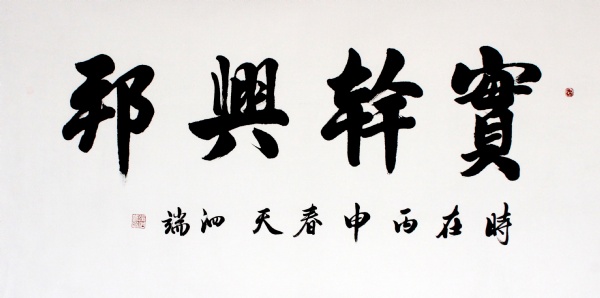 實幹興邦
時在丙申春天泗端